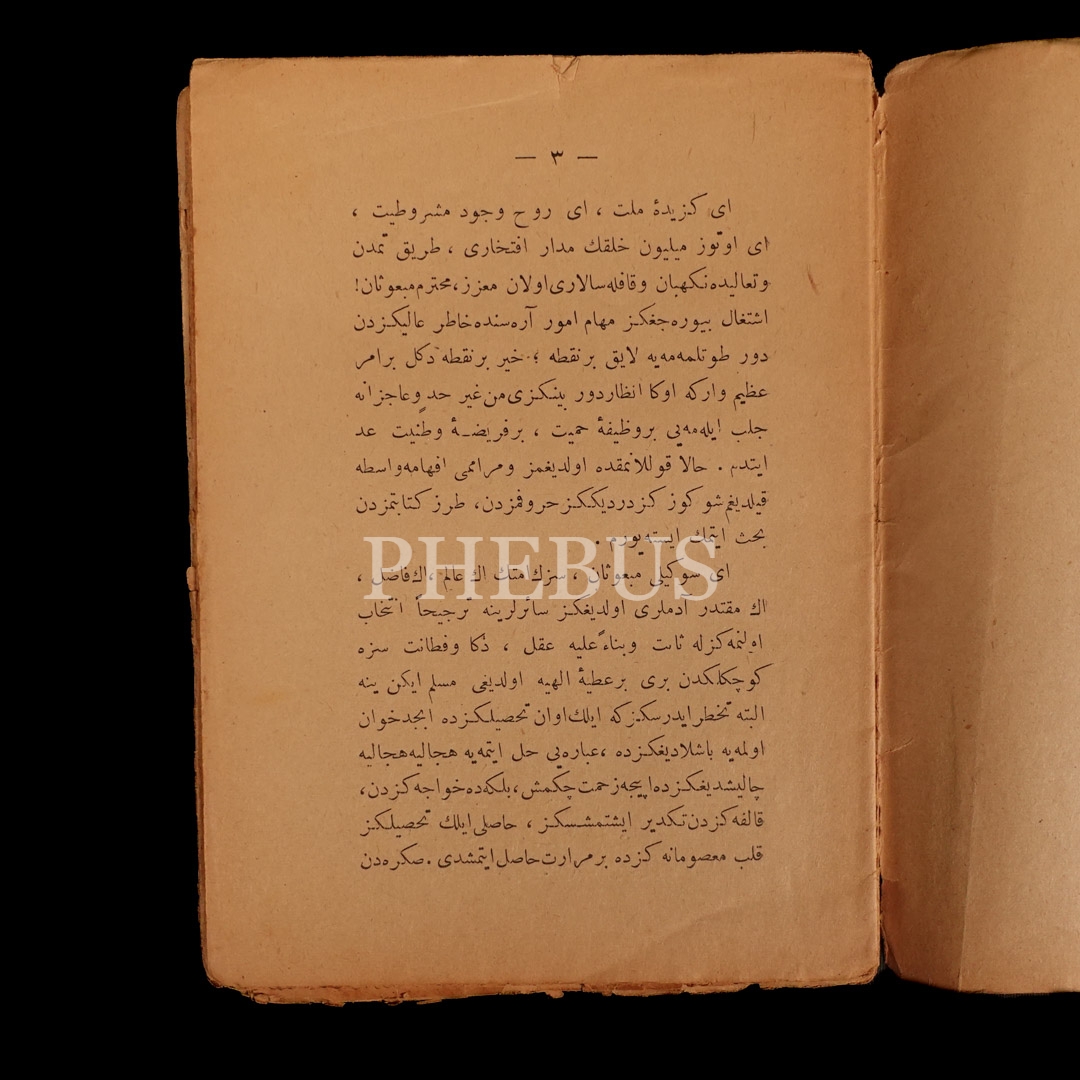 — ٣ —
ای گزیدهٔ ملت ، ای روح وجود مشروطیت ،
ای اوتوز میلیون خلقك مدار افتخاری ، طریق تمدن
وتعالیده نکهبان وقافله سالاری اولان معزز، محترم مبعوثان!
اشتغال بیوره جغکز مهام امور آره سنده خاطر عالیکزدن
دور طوتلمه مه یه لایق بر نقطه ؛ خیر بر نقطه دکل بر امر
عظیم وارکه اوکا انظار دور بینکزی من غیر حد وعاجزانه
جلب ایله مه یی بر وظیفهٔ حمیت ، بر فریضهٔ وطنیت عد
ایتدم . حالا قوللانمقده اولدیغمز ومراممی افهامه واسطه
قیلدیغم شو کوز کزدردیککز حروفمزدن، طرز کتابتمزدن
بحث ایتمك ایسته یورم .
ای سوکیلی مبعوثان ، سزك امتك اك عالم ، اك فاضل ،
اك مقتدر آدملری اولدیغکز سائرلرینه ترجیحاً انتخاب
اولنمه کزله ثابت وبناءً علیه عقل ، ذکا وفطانت سزه
کوچکلکدن بری بر عطیهٔ الهیه اولدیغی مسلم ایکن ینه
البته تخطر ایدرسکز که ایلك اوان تحصیلکزده ابجدخوان
اولمه یه باشلادیغکزده ، عباره یی حل ایتمه یه هجالیه هجالیه
چالیشدیغکزده اپیجه زحمت چکمش، بلکه ده خواجه کزدن،
قالفه کزدن تکدیر ایشتمشسکز ، حاصلی ایلك تحصیلکز
قلب معصومانه کزده بر مرارت حاصل ایتمشدی . صکره دن
PHEBUS